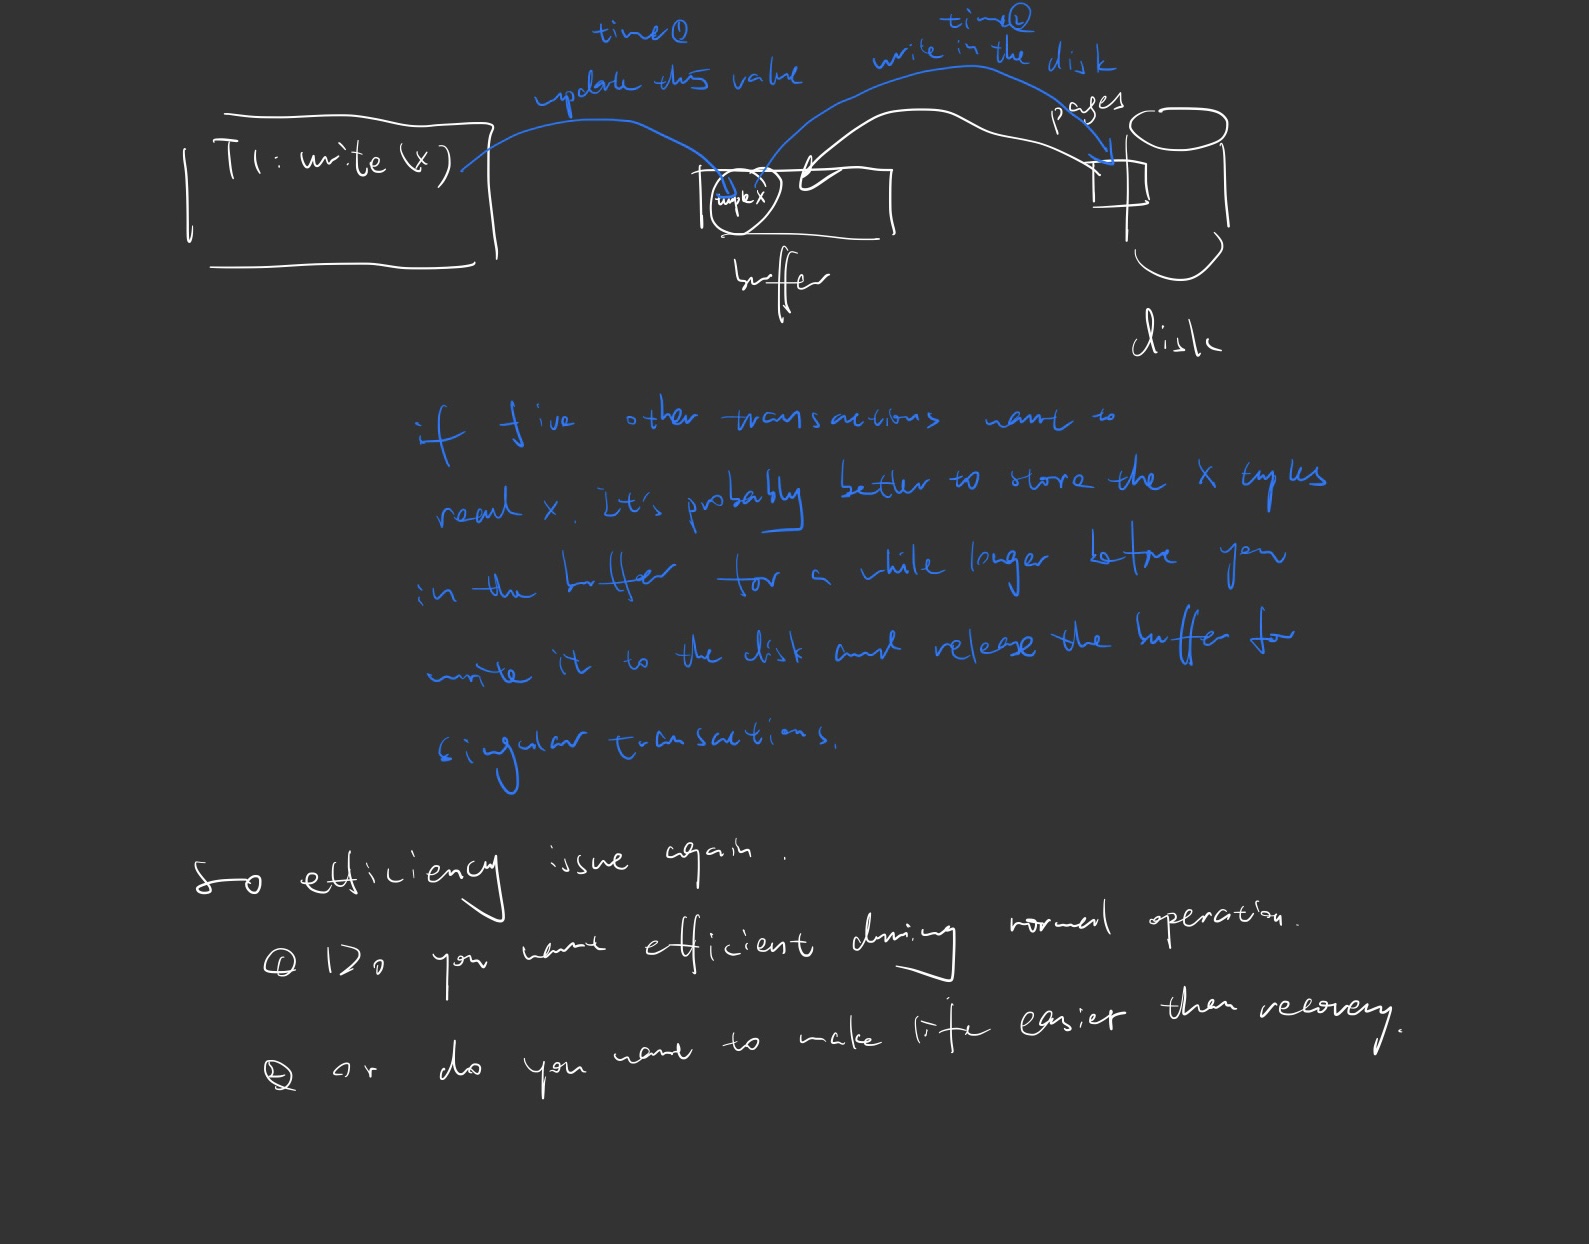 time①
update this value
time②
write in the disk
pages
T1: write (x)
tuple x
buffer
disk
if five other transactions want to
read x. It's probably better to store the x tuples
in the buffer for a while longer before you
write it to the disk and release the buffer for
singular transactions.
So efficiency issue again.
① Do you want efficient during normal operation.
② or do you want to make life easier then recovery.